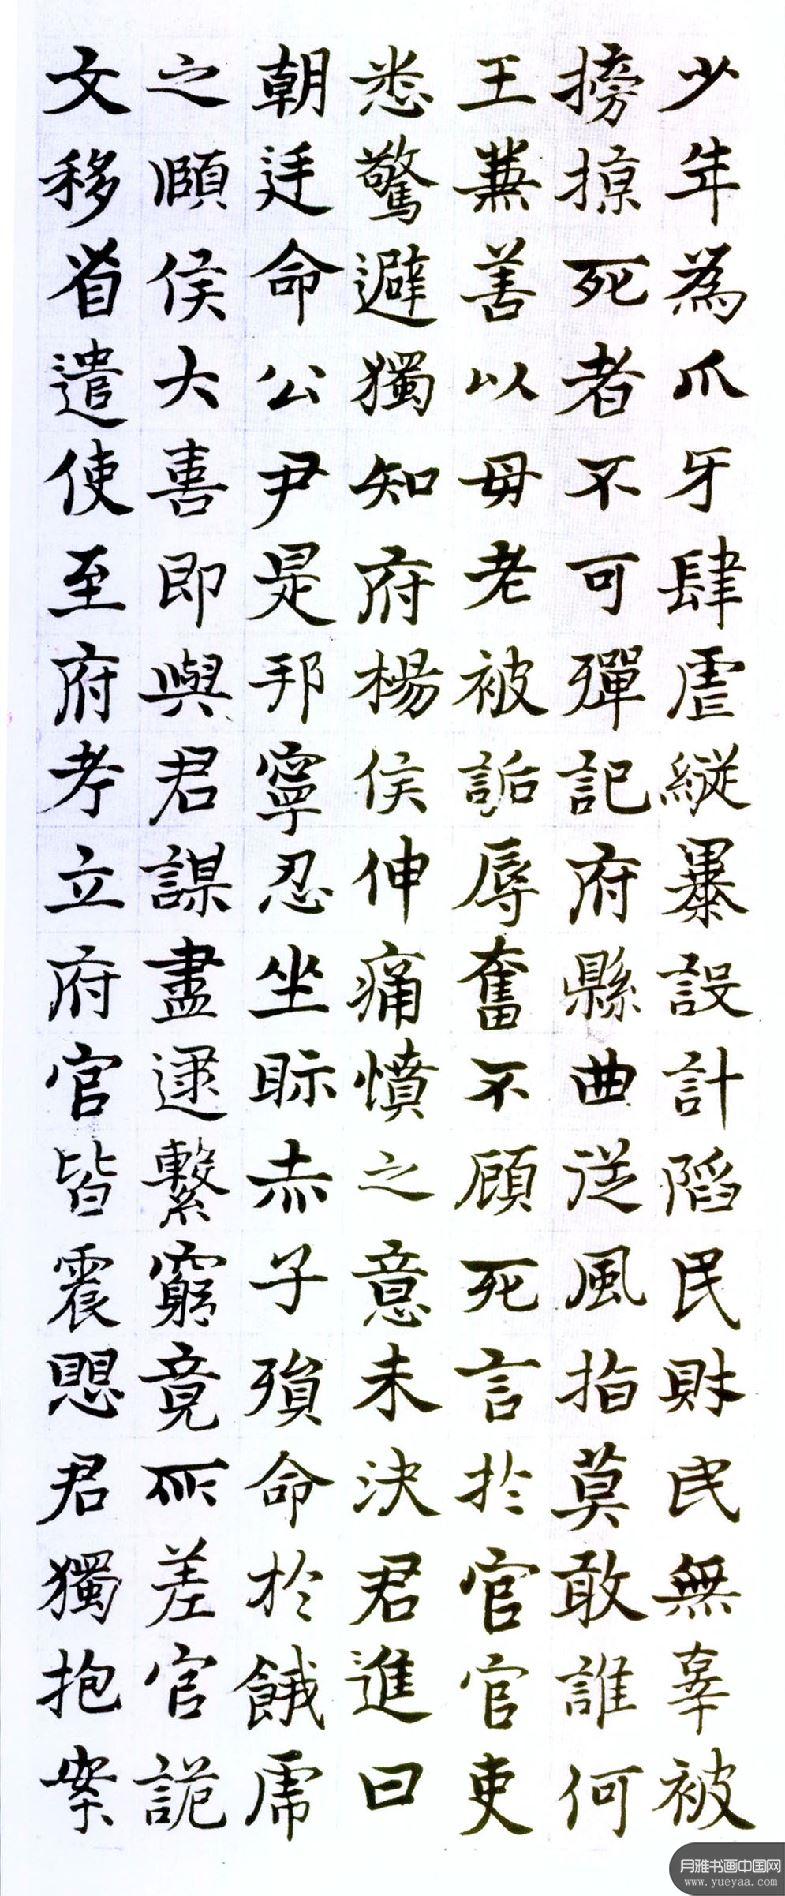 少年為爪牙肆虐縱暴設計陷民財民無辜被
搒掠死者不可殫記府縣曲從風指莫敢誰何
王蕪善以母老被詬辱奮不顧死言於官官吏
悉驚避獨知府楊侯伸痛憤之意未決君進曰
朝廷命公尹是邦寧忍坐眎赤子殞命於餓虎
之頤侯大喜即與君謀盡逮繫窮竟所差官詭
文移省遣使至府考立府官皆震愳君獨抱案
月雅书画中国网
www.yueyaa.com